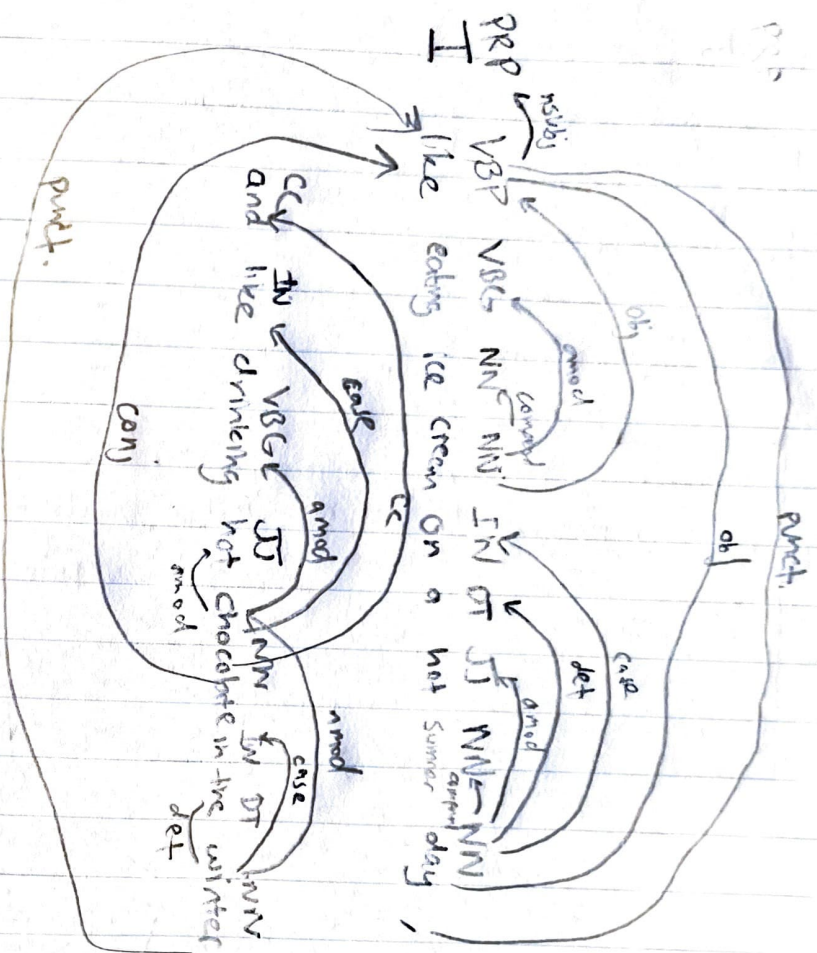 punct.
obl
obj
case
det
amod
amod
compound
nsubj
PRP VBP VBG NN NN IN DT JJ NN NN
I like eating ice cream on a hot summer day ,
cc
case
nmod
amod
case
CC IN VBG JJ NN IN DT NN
and like drinking hot chocolate in the winter
amod
det
conj
punct.